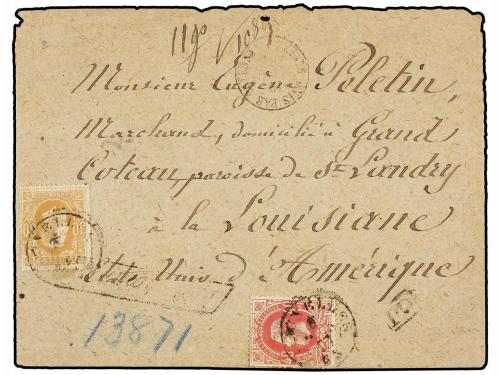 Monsieur Eugène Peletin,
Marchand, domicilié à Grand
Coteau, paroisse de St Landry
à la Louisiane
Etats Unis d'Amérique
13871
PD